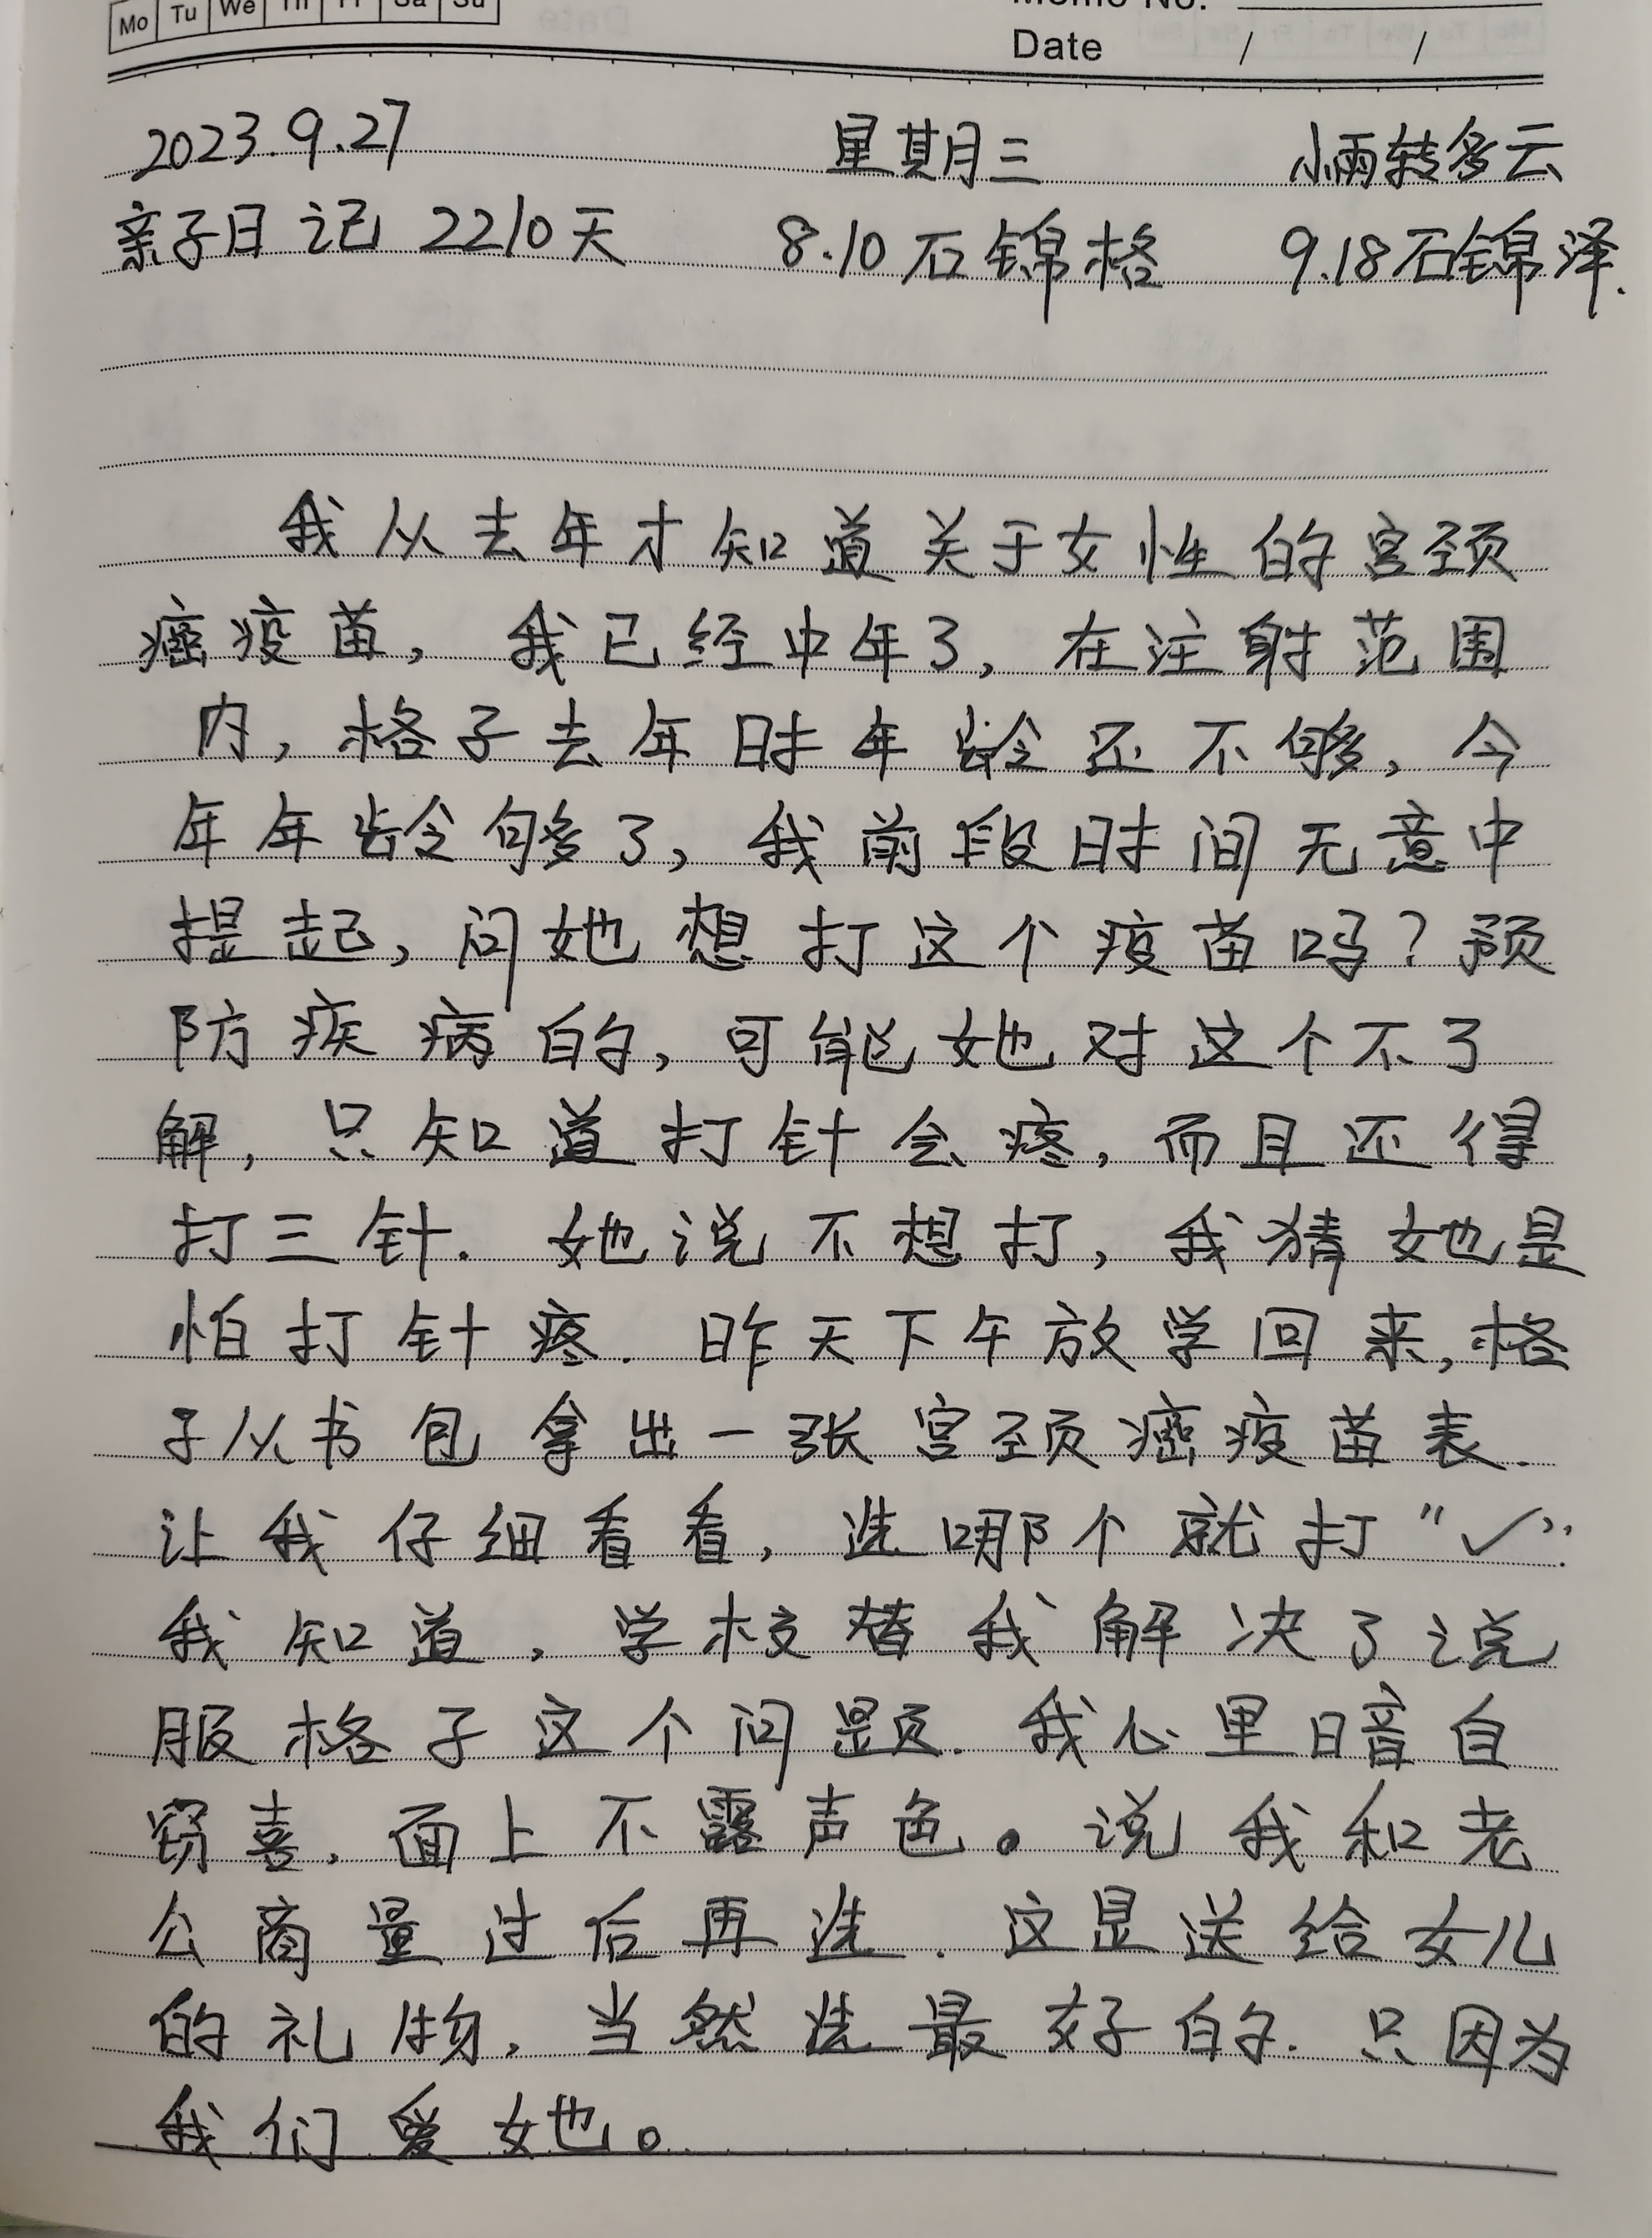 Mo Tu We Th Fr Sa Su
Memo No.
Date / /
2023.9.27 星期三 小雨转多云
亲子日记 2210天 8.10石锦格 9.18石锦泽.
我从去年才知道关于女性的宫颈
癌疫苗，我已经中年了，在注射范围
内，格子去年时年龄还不够，今
年年龄够了，我前段时间无意中
提起，问她想打这个疫苗吗？预
防疾病的，可能她对这个不了
解，只知道打针会疼，而且还得
打三针．她说不想打，我猜她是
怕打针疼．昨天下午放学回来，格
子从书包拿出一张宫颈癌疫苗表．
让我仔细看看，选哪个就打“✓”．
我知道，学校替我解决了说
服格子这个问题．我心里暗自
窃喜，面上不露声色。说我和老
公商量过后再选．这是送给女儿
的礼物，当然选最好的．只因为
我们爱她。